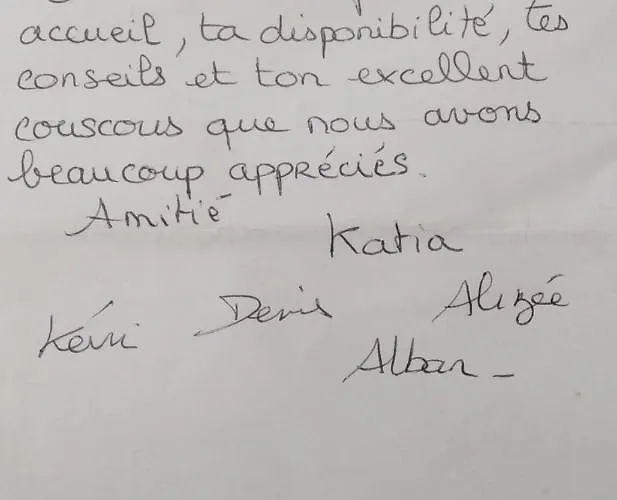 accueil, ta disponibilité, tes
conseils et ton excellent
couscous que nous avons
beaucoup appréciés.
Amitié
Katia
Kévin Denis Alizée
Alban